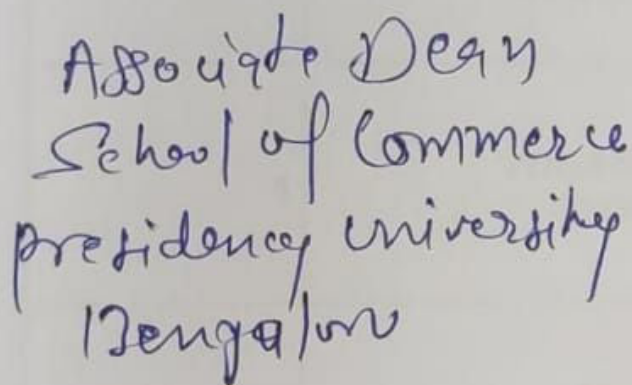 Associate Dean
School of Commerce
presidency university
Bengalore